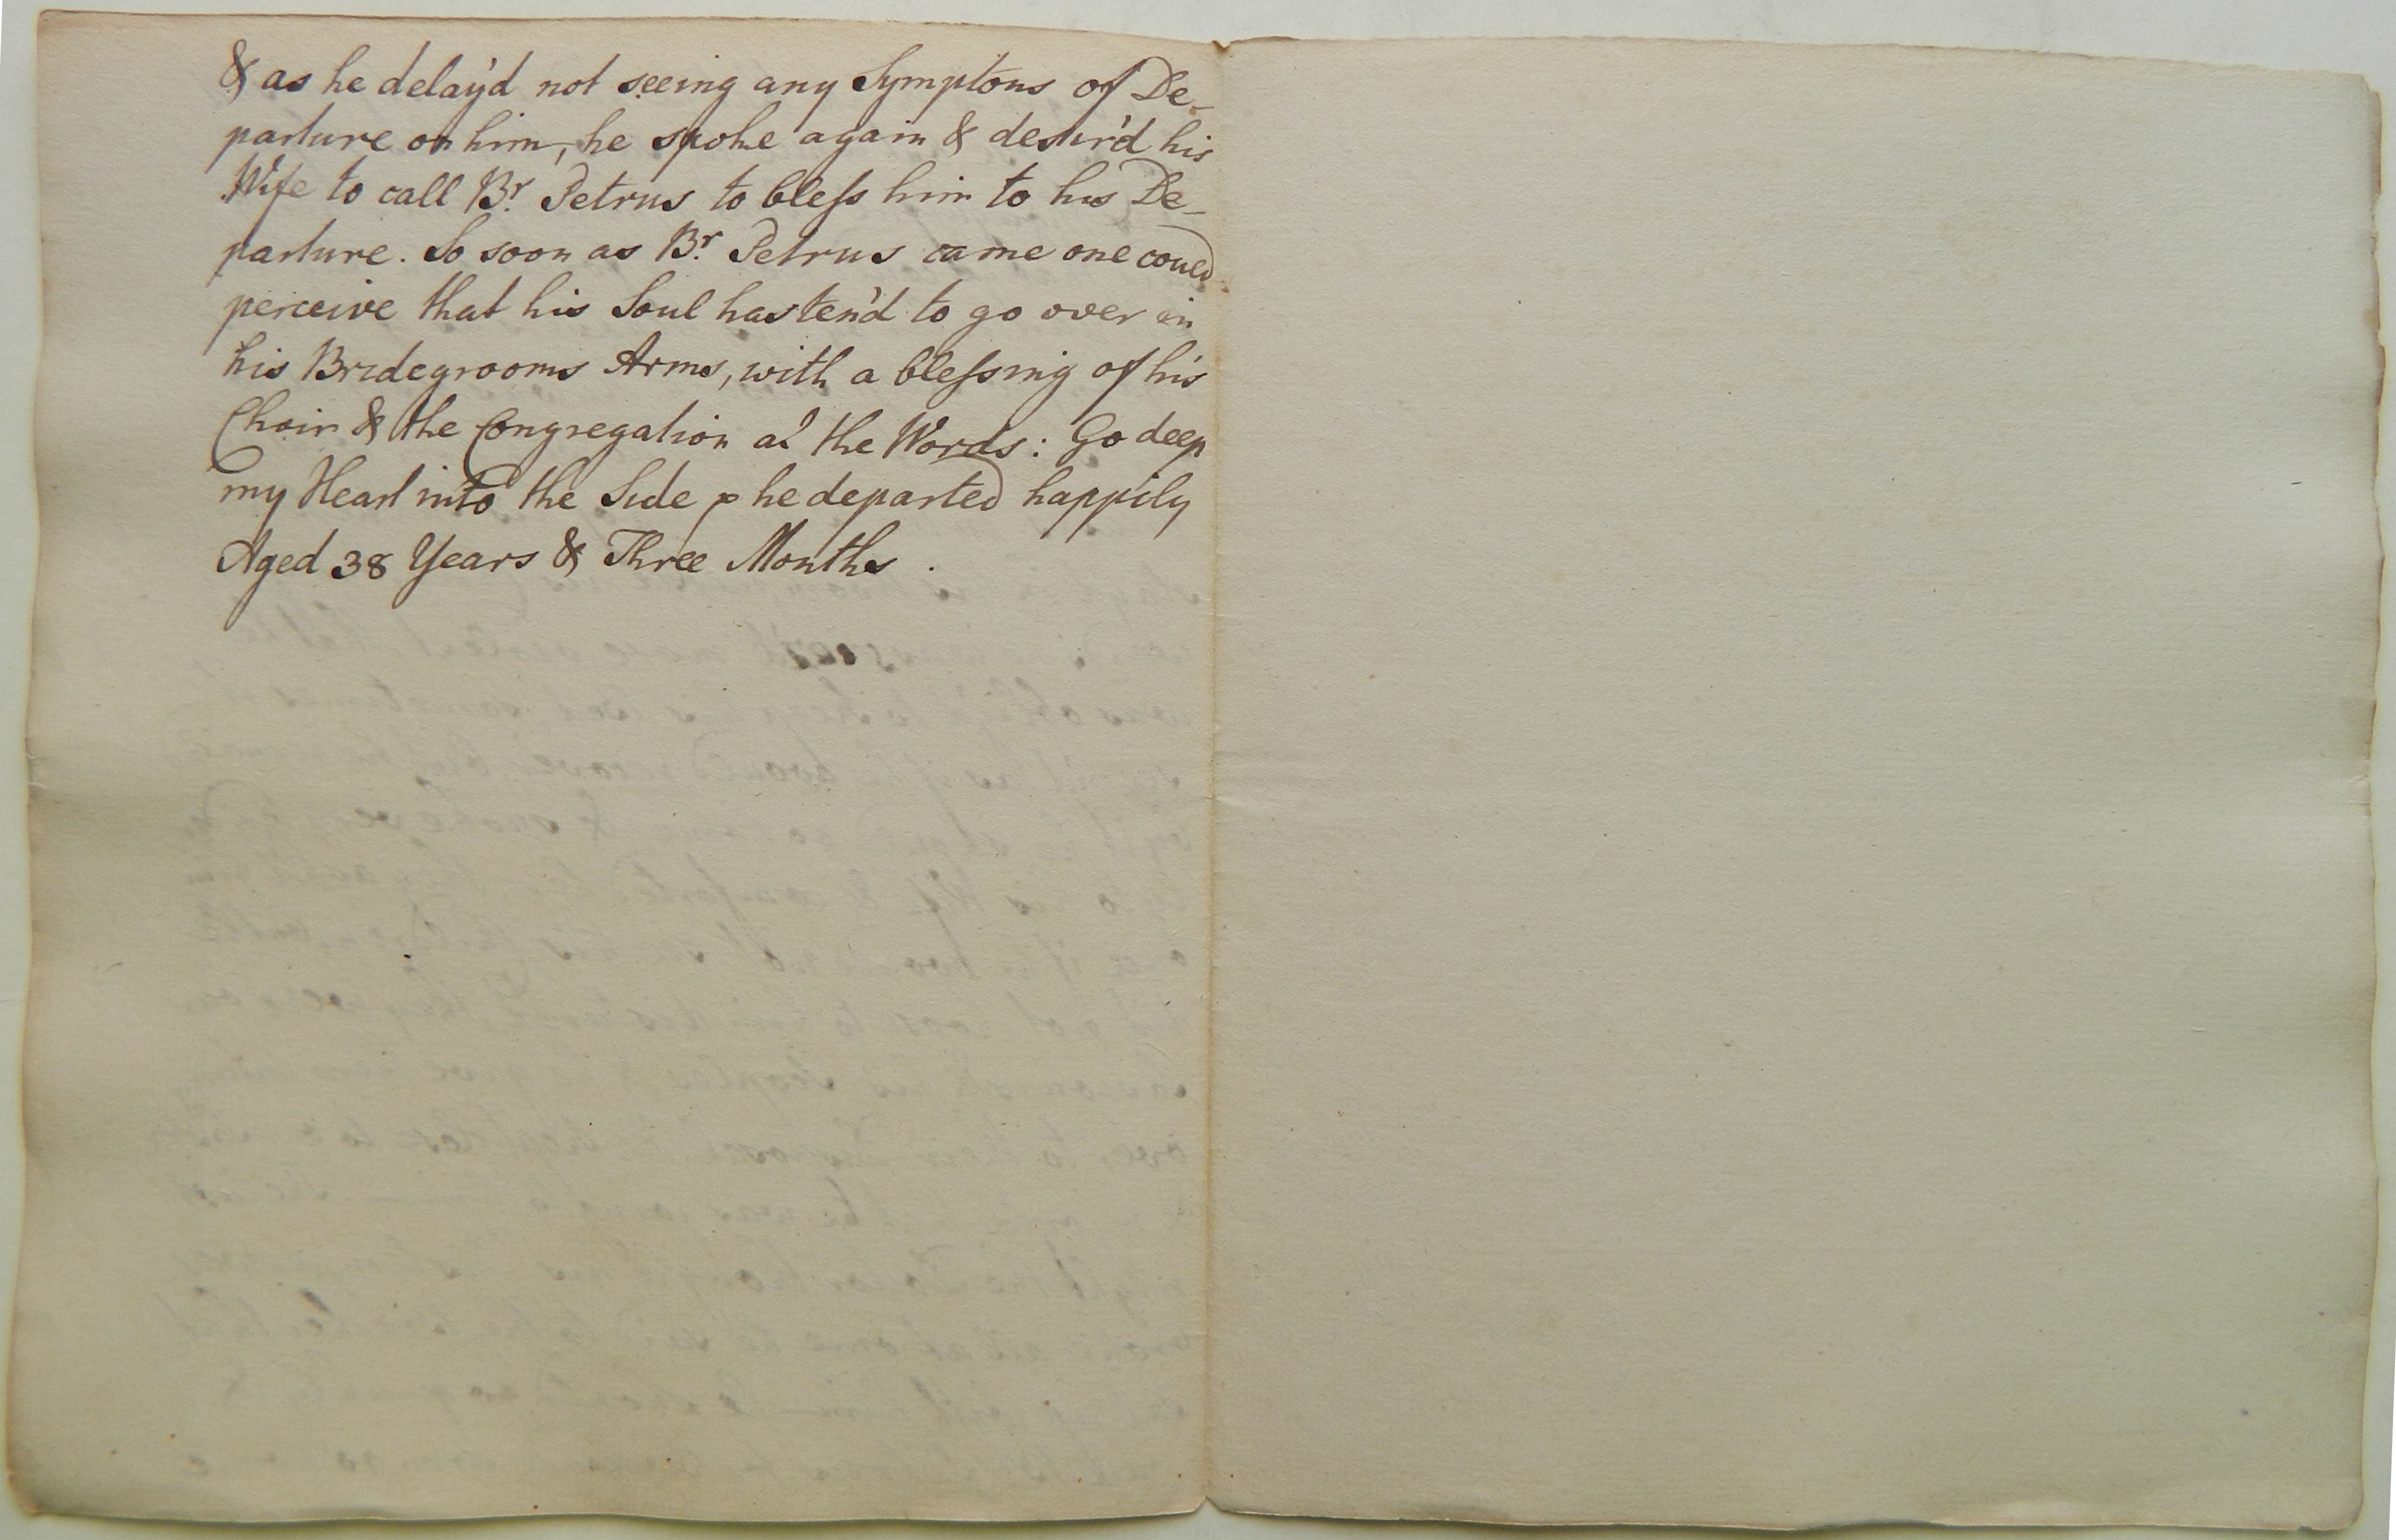 & as he delay'd not seeing any Symptons of De-
parture on him, he spoke again & desir'd his
Wife to call Br. Petrus to bless him to his De-
parture. So soon as Br. Petrus came one could
perceive that his Soul hasten'd to go over in
his Bridegrooms Arms, with a blessing of his
Choir & the Congregation at the Words: Go deep
my Heart into the Side he departed happily
Aged 38 Years & Three Months.